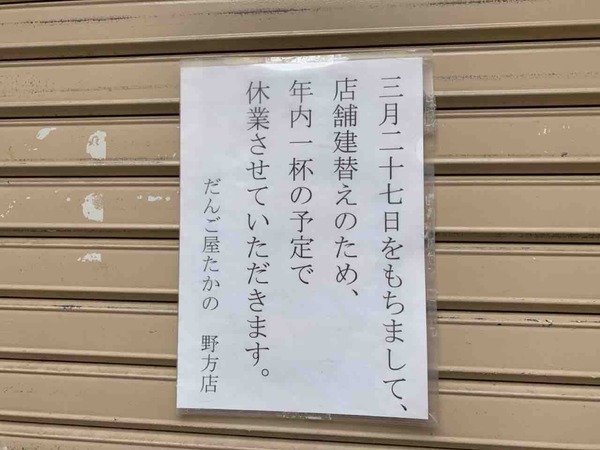 三月二十七日をもちまして、
店舗建替えのため、
年内一杯の予定で
休業させていただきます。
だんご屋たかの 野方店